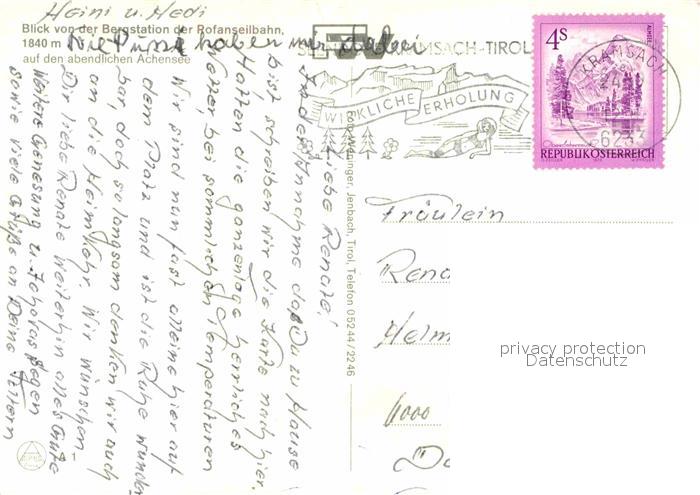 Heini u. Hedi
Blick von der Bergstation der Rofanseilbahn,
1840 m
auf den abendlichen Achensee
haben wir dabei
Liebe Renate!
In der Annahme daß Du zu Hause
bist schreiben wir die Karte nach hier.
Hatten die ganze Tage herrliches
Wetter, bei sommlichen Temperaturen
Wir sind nun fast alleine hier auf
dem Platz und ist die Ruhe wunder-
bar doch so langsam denken wir auch
an die Heimkehr. Wir wünschen
Dir liebe Renate Weiterhin alles Gute
Weitere Genesung u. Segen
sowie viele Grüße an Deine Eltern
A 1
Jenbach, Tirol, Telefon 05244/2246
KRAMSACH-TIROL
WIRKLICHE ERHOLUNG
4S
REPUBLIK ÖSTERREICH
KRAMSACH
6233
Fräulein
Rena
Helm
privacy protection
Datenschutz